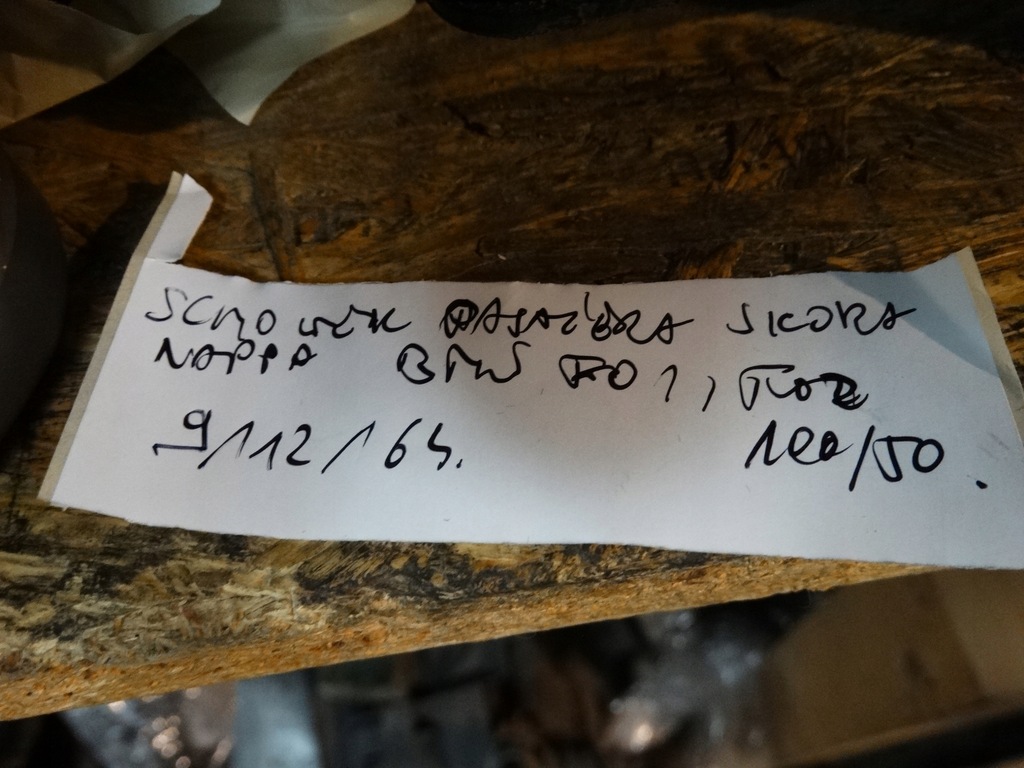 SCHOWEK PASAŻERA SKÓRA
NAPPA BMW F01, F02
9/12/64. 100/50.